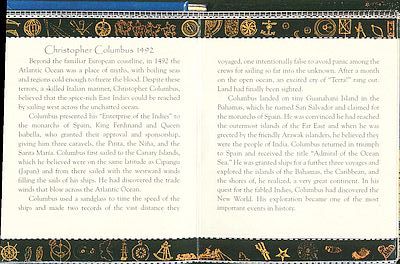 Christopher Columbus 1492
Beyond the familiar European coastline, in 1492 the
Atlantic Ocean was a place of myths, with boiling seas
and regions cold enough to freeze the blood. Despite these
terrors, a skilled Italian mariner, Christopher Columbus,
believed that the spice-rich East Indies could be reached
by sailing west across the uncharted ocean.
Columbus presented his "Enterprise of the Indies" to
the monarchs of Spain, King Ferdinand and Queen
Isabella, who granted their approval and sponsorship,
giving him three caravels, the Pinta, the Niña, and the
Santa Maria. Columbus first sailed to the Canary Islands,
which he believed were on the same latitude as Cipangu
(Japan) and from there sailed with the westward winds
filling the sails of his ships. He had discovered the trade
winds that blow across the Atlantic Ocean.
Columbus used a sandglass to time the speed of the
ships and made two records of the vast distance they
voyaged, one intentionally false to avoid panic among the
crews for sailing so far into the unknown. After a month
on the open ocean, an excited cry of "Terra!" rang out.
Land had finally been sighted.
Columbus landed on tiny Guanahani Island in the
Bahamas, which he named San Salvador and claimed for
the monarchs of Spain. He was convinced he had reached
the outermost islands of the Far East and when he was
greeted by the friendly Arawak islanders, he believed they
were the people of India. Columbus returned in triumph
to Spain and received the title "Admiral of the Ocean
Sea." He was granted ships for a further three voyages and
explored the islands of the Bahamas, the Caribbean, and
the shores of, he realized, a very great continent. In his
quest for the fabled Indies, Columbus had discovered the
New World. His exploration became one of the most
important events in history.